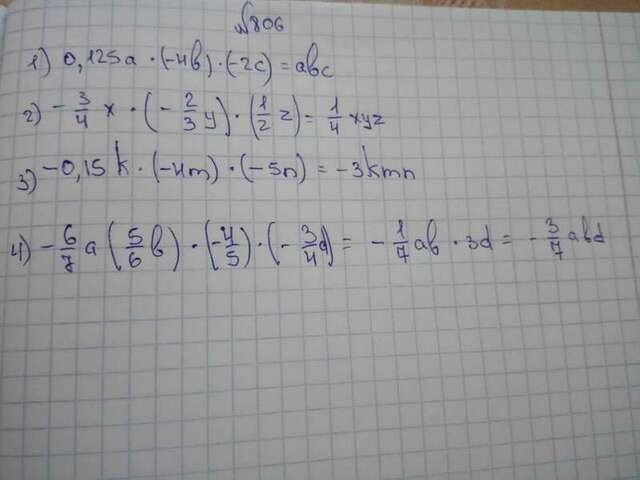 №806
1) 0,125a · (-4b) · (-2c) = abc
2) - 3/4 x · (- 2/3 y) · (1/2 z) = 1/4 xyz
3) -0,15k · (-4m) · (-5n) = -3kmn
4) - 6/7 a (5/6 b) · (-4/5) · (- 3/4 d) = - 1/7 ab · 3d = - 3/7 abd